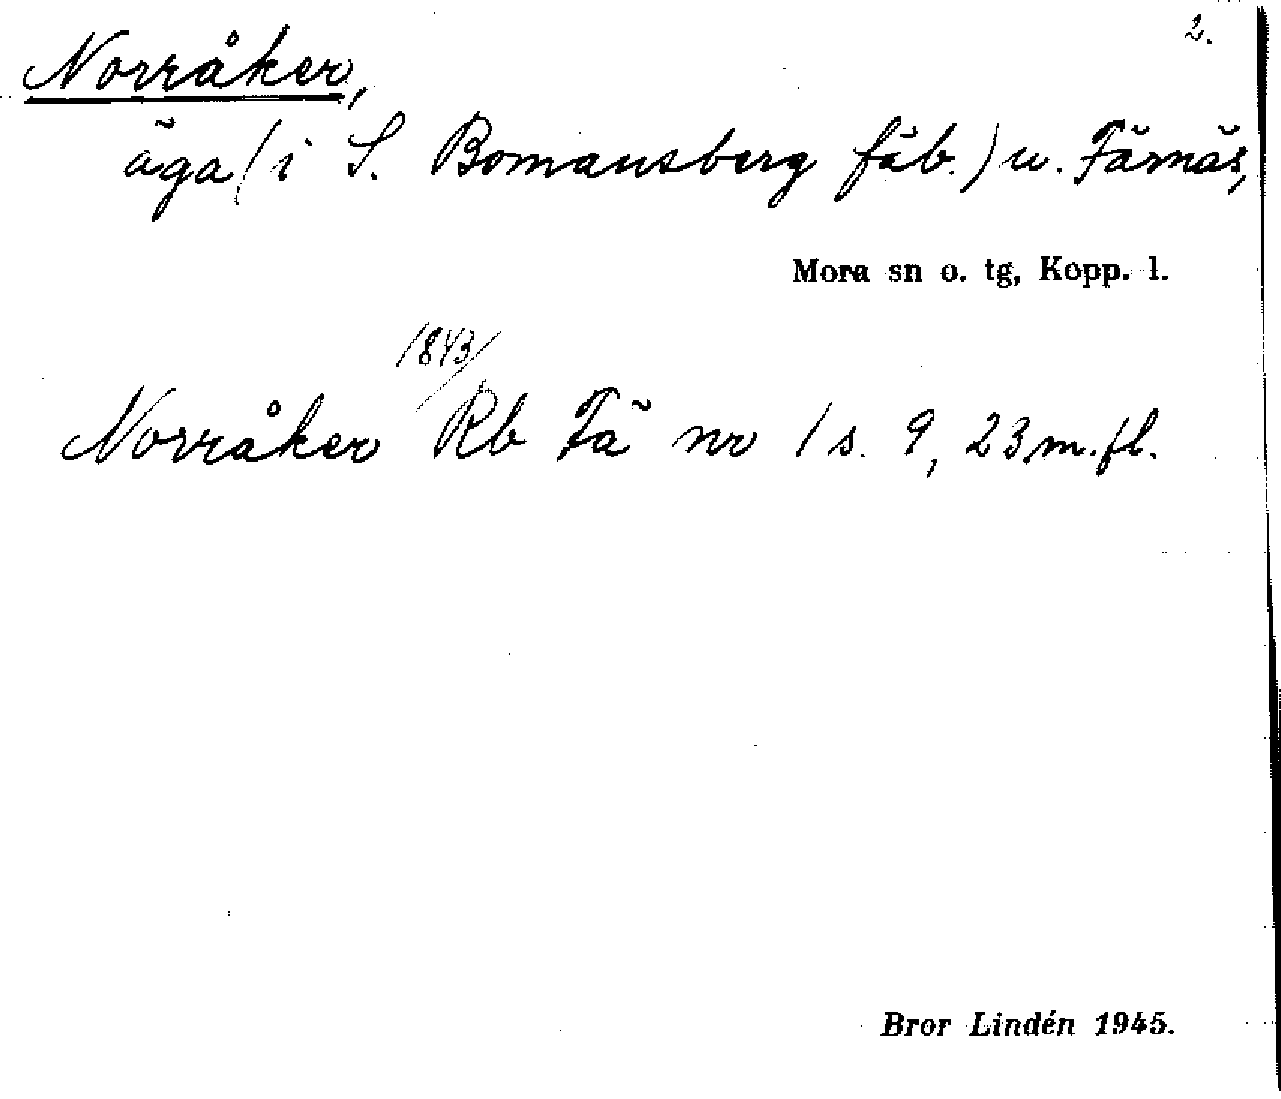 2.
Norråker,
äga (i S. Bomansberg fäb.) u. Färnäs,
Mora sn o. tg, Kopp. l.
1843/
Norråker Rb Fä nr 1 s. 9, 23 m.fl.
Bror Lindén 1945.